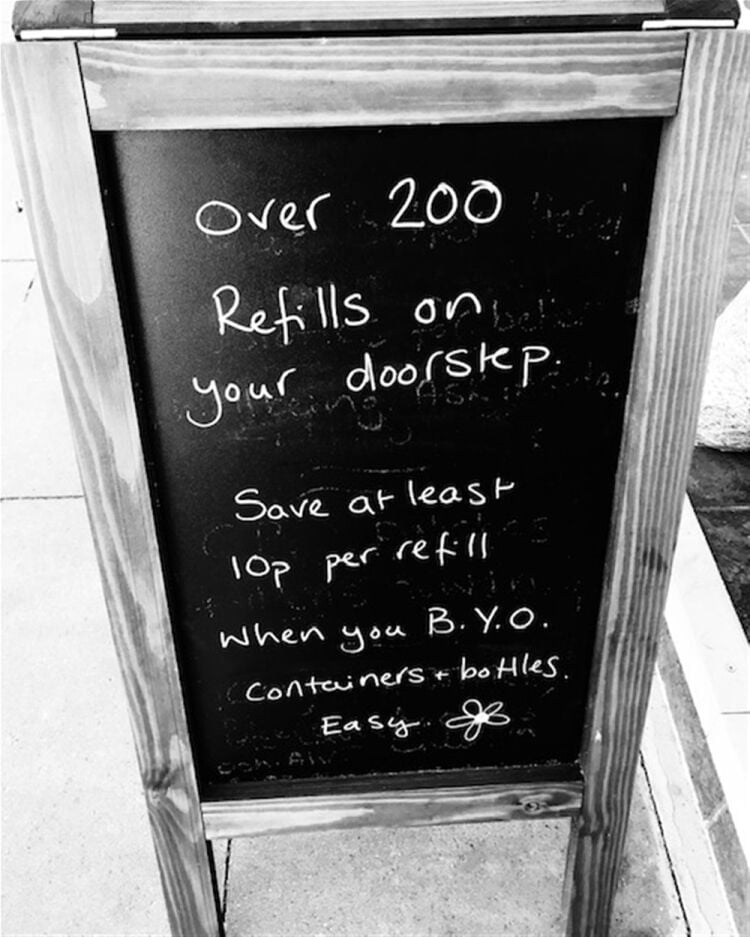 Over 200
Refills on
your doorstep.
Save at least
10p per refill
when you B.Y.O.
Containers + bottles.
Easy.